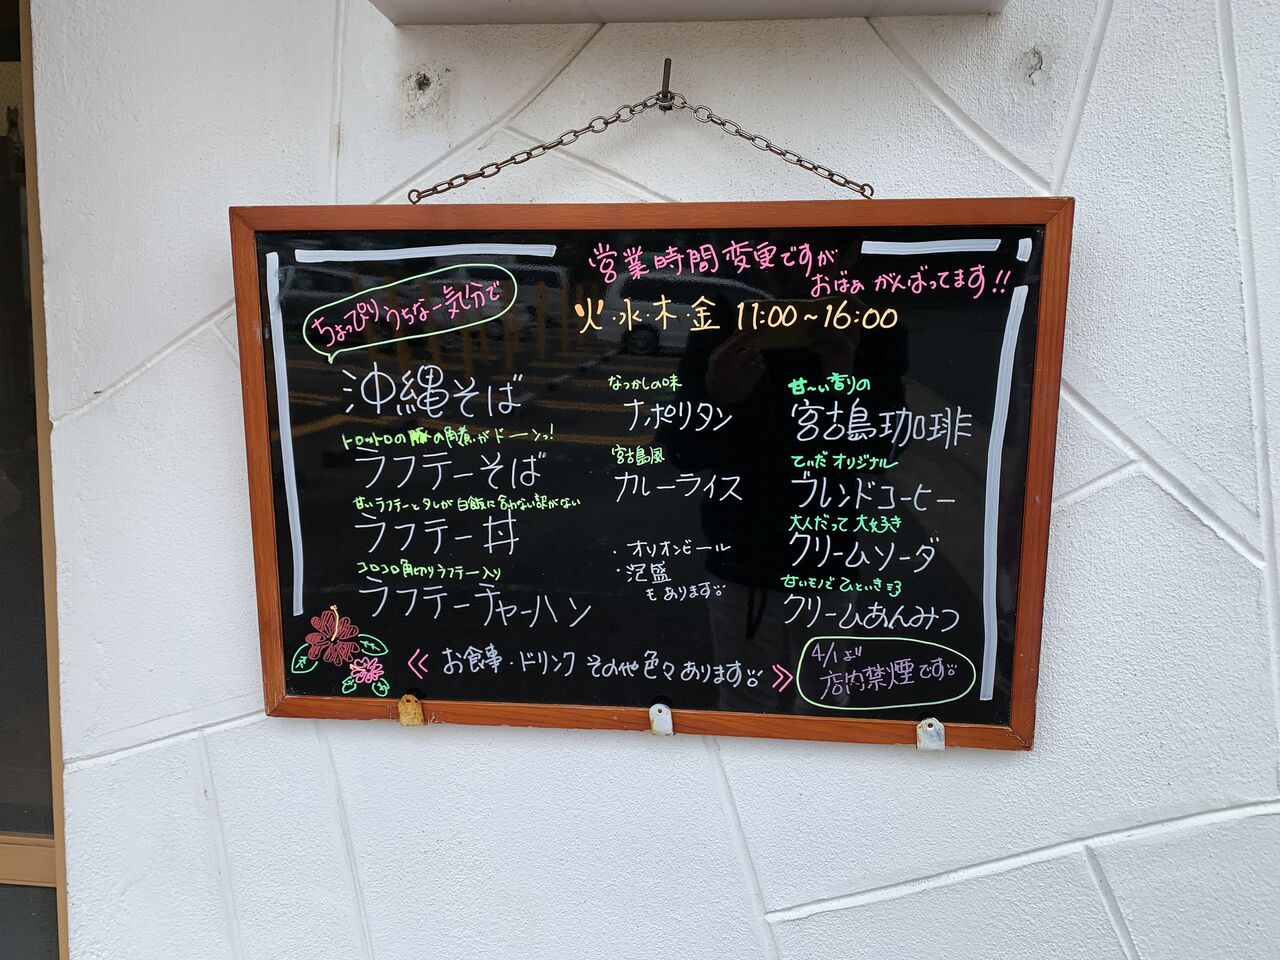 営業時間変更ですが
おばぁ がんばってます!!
火・水・木・金 11:00~16:00
ちょっぴりうちなー気分で
沖縄そば
トロットロの豚の角煮がドーンっ!
ラフテーそば
甘いラフテーとタレが白飯に合わない訳がない
ラフテー丼
コロコロ角切りラフテー入り
ラフテーチャーハン
なつかしの味
ナポリタン
宮古島風
カレーライス
・オリオンビール
・泡盛
もあります
甘〜い香りの
宮古島珈琲
てぃだオリジナル
ブレンドコーヒー
大人だって大好き
クリームソーダ
甘いモノでひといき
クリームあんみつ
《 お食事・ドリンク その他色々あります 》
4/1より
店内禁煙です